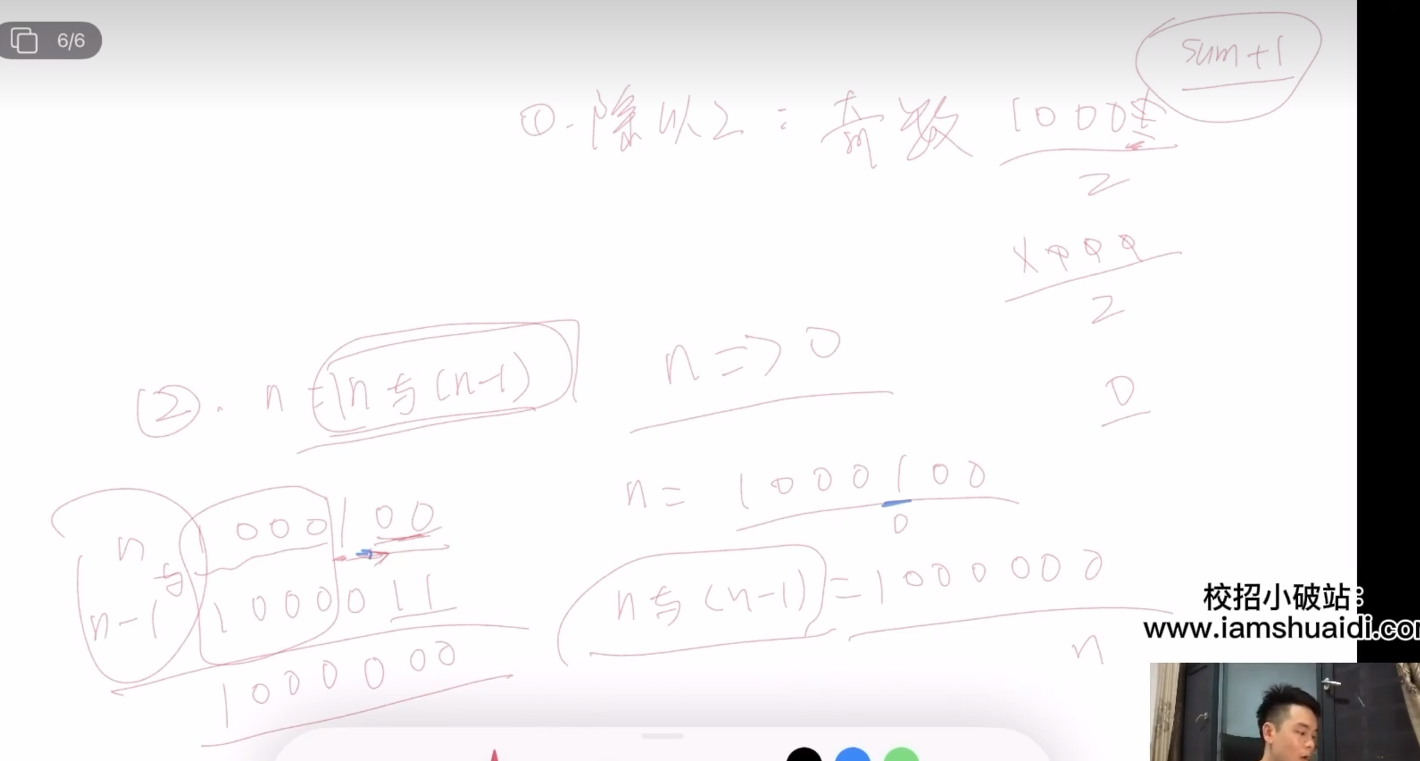 6/6
sum+1
①. 除以2: 奇数 10001
2
1000
2
0
②. n = n与(n-1) n => 0
n = 1000100
0
n 1000100
与
n-1 1000011
1000000
n与(n-1) = 1000000
n
校招小破站:
www.iamshuaidi.com